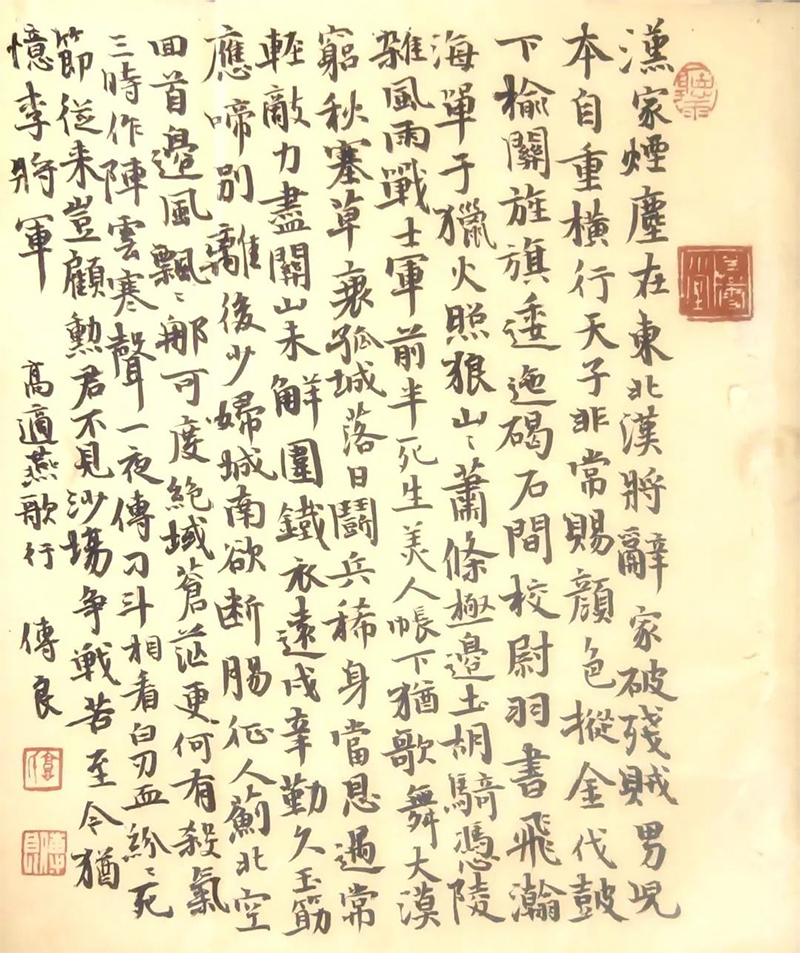 漢家煙塵在東北漢將辭家破殘賊男児
本自重橫行天子非常賜顏色摐金伐鼓
下榆關旌旗逶迤碣石間校尉羽書飛瀚
海單于獵火照狼山〻蕭條極邊土胡騎憑陵
雜風雨戰士軍前半死生美人帳下猶歌舞大漠
窮秋塞草衰孤城落日鬭兵稀身當恩遇常
輕敵力盡關山未解圍鐵衣遠戍辛勤久玉筯
應啼別離後少婦城南欲断腸征人薊北空
回首邊風飄〻那可度絕域蒼茫更何有殺氣
三時作陣雲寒聲一夜傳刁斗相看白刃血紛〻死
節從来豈顧勲君不見沙場争戰苦至今猶
憶李將軍 高適燕歌行 傅良